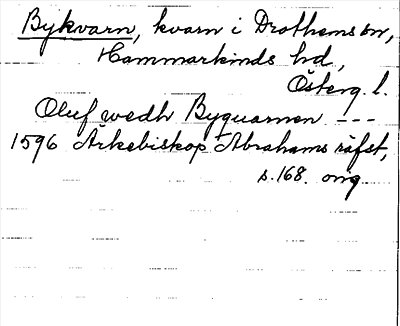 Bykvarn, kvarn i Drothems sn,
Hammarkinds hd,
Österg. l.
Oluf wedh Byquarnen ---
1596 Ärkebiskop Abrahams räfst,
s. 168. orig.